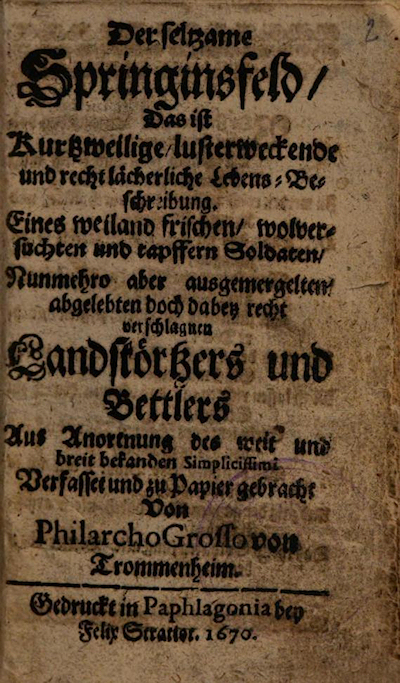 2
Der seltzame
Springinsfeld/
Das ist
Kurtzweilige/lusterweckende
und recht lächerliche Lebens-Be-
schreibung.
Eines weiland frischen/ wolver-
suchten und tapffern Soldaten/
Nunmehro aber ausgemergelten/
abgelebten doch dabey recht
verschlagnen
Landstörtzers und
Bettlers
Aus Anordnung des weit und
breit bekanden Simplicissimi
Verfasset und zu Papier gebracht
Von
Philarcho Grosso von
Trommenheim.
Gedruckt in Paphlagonia bey
Felix Stratiot. 1670.